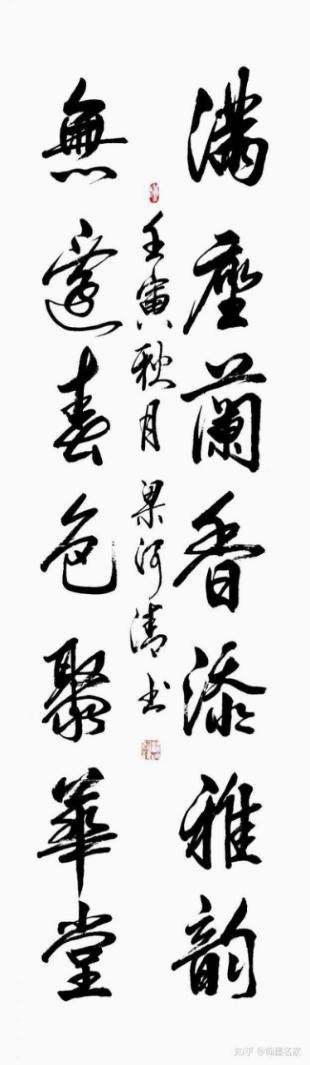 滿座蘭香添雅韻
無邊春色聚華堂
壬寅秋月 梁河清书
知乎 @翰墨名家